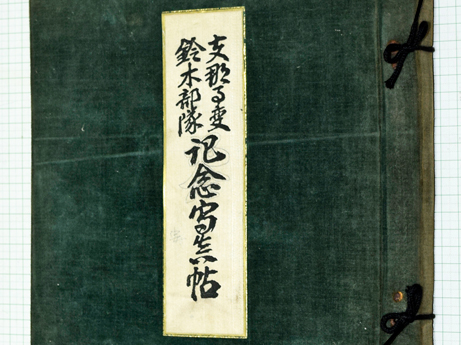 支那事変
鈴木部隊
記念写真帖